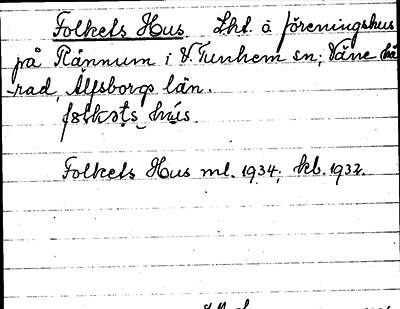 Folkets Hus Lht. å föreningshus
på Rånnum i V. Tunhem sn; Väne hä
-rad, Älfsborgs län.
Folkets Hus ml. 1934; kb. 1932.